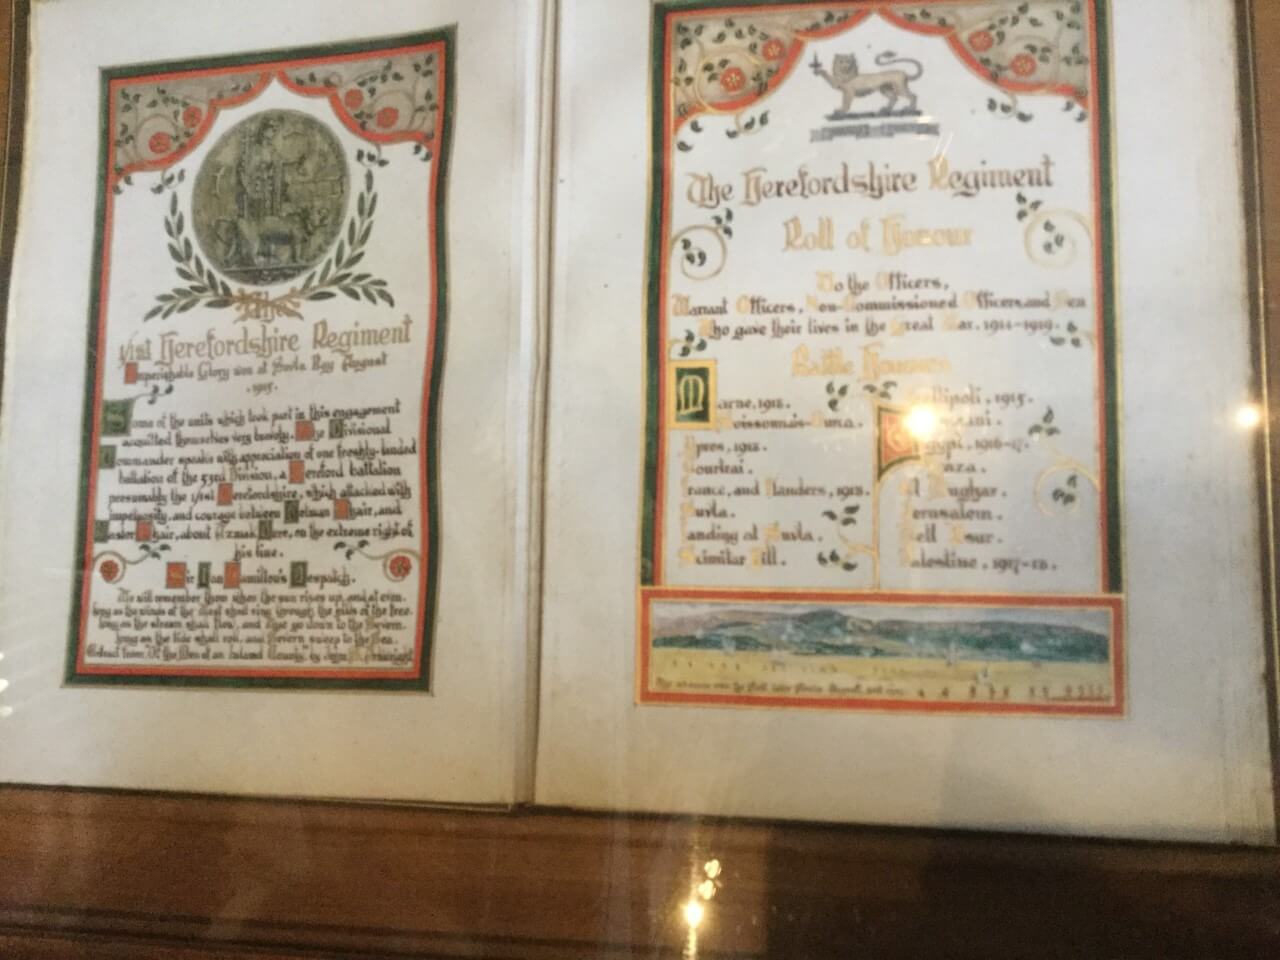 The
1/1st Herefordshire Regiment
Imperishable Glory won at Suvla Bay August
1915.
Some of the units which took part in this engagement
acquitted themselves very bravely. The Divisional
Commander speaks with appreciation of one freshly-landed
battalion of the 53rd Division, a Hereford battalion
presumably the 1/1st Herefordshire, which attacked with
impetuosity, and courage between Hetman Chair, and
Chair, about Azmak Dere, on the extreme right of
his line.
Sir Ian Hamilton's Despatch.
We will remember them when the sun rises up, and at even.
long as the winds of the West shall sing through the hills of the free.
long as the stream shall flow, and Wye go down to the Severn.
long as the tide shall roll, and Severn sweep to the Sea.
from "Of the Men of an Inland County" by
The Herefordshire Regiment
Roll of Honour
To the Officers,
Warrant Officers, Non-Commissioned Officers, and Men
Who gave their lives in the Great War. 1914-1919.
Battle Honours
Marne, 1918.
Soissonnais-Ourcq.
Ypres, 1918.
Courtrai.
France, and Flanders, 1918.
Suvla.
Landing at Suvla.
Scimitar Hill.
Gallipoli, 1915.
Rumani.
Egypt, 1916-17.
Gaza.
El Mughar.
Jerusalem.
Tell 'Asur.
Palestine, 1917-18.
The advance over the Salt Lake Suvla August